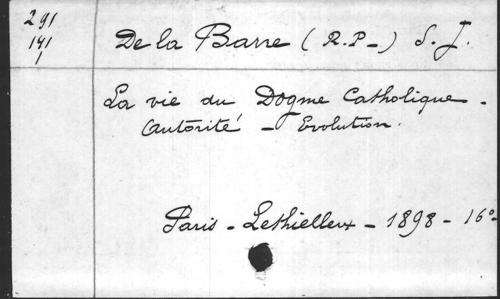 291
141
1
De la Barre (R.P.-) S.J.
La vie du Dogme Catholique -
Autorité - Evolution.
Paris - Lethielleux - 1898 - 16°-